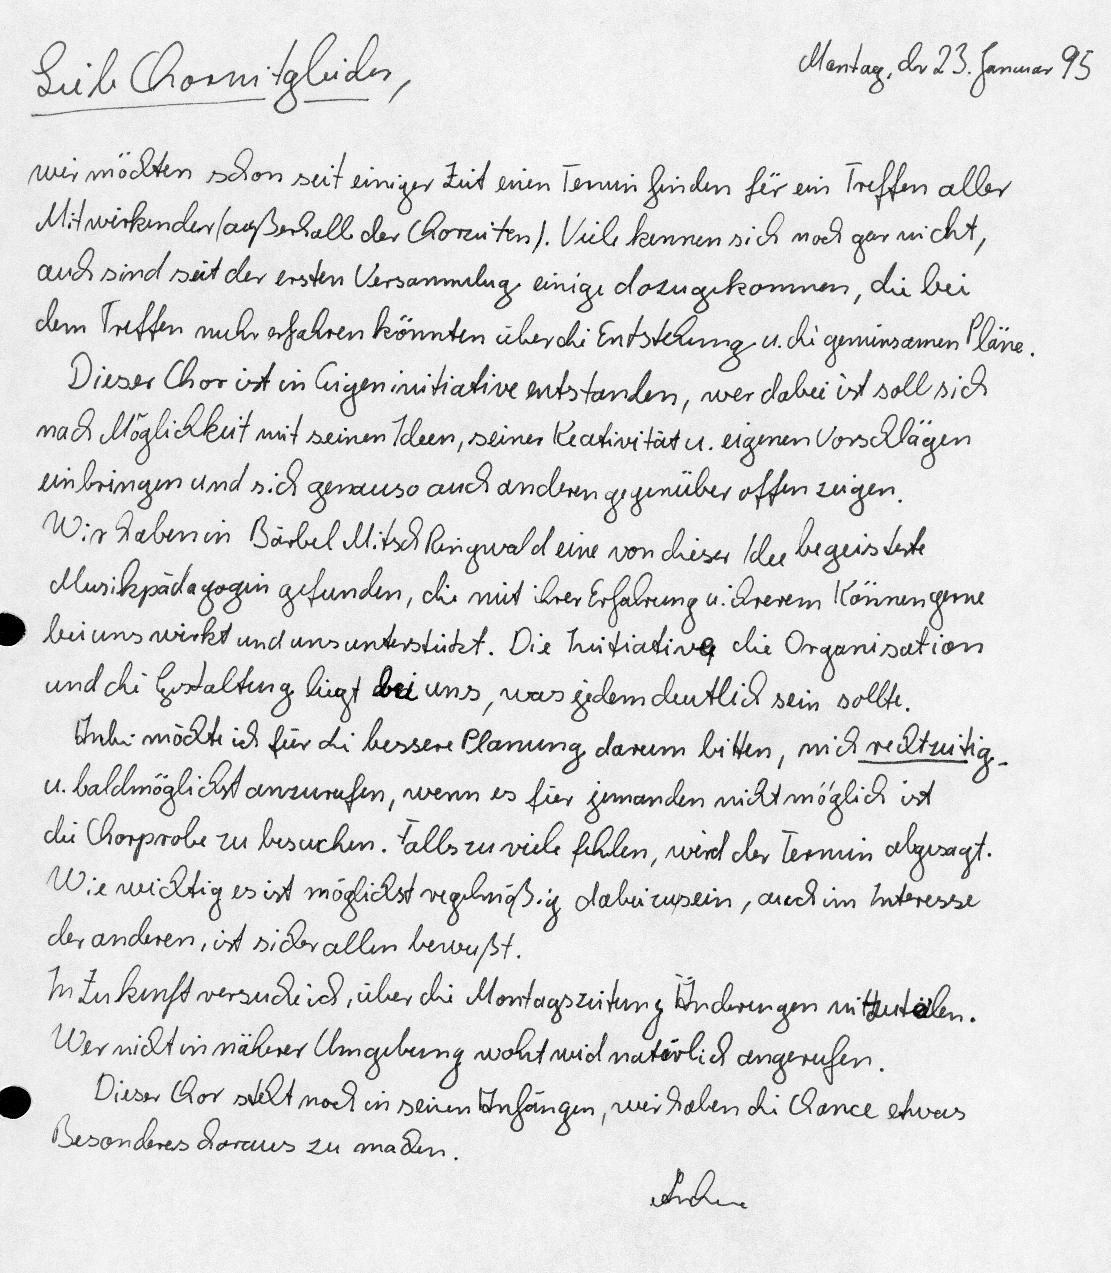 Montag, der 23. Januar 95
Liebe Chormitglieder,
wir möchten schon seit einiger Zeit einen Termin finden für ein Treffen aller
Mitwirkender (außerhalb der Chorzeiten). Viele kennen sich noch gar nicht,
auch sind seit der ersten Versammlug einige dazugekommen, die bei
dem Treffen mehr erfahren könnten über die Entstehung u. die gemeinsamen Pläne.
Dieser Chor ist in Eigeninitiative entstanden, wer dabei ist soll sich
nach Möglichkeit mit seinen Ideen, seiner Keativität u. eigenen Vorschlägen
einbringen und sich genauso auch anderen gegenüber offen zeigen.
Wir haben in Bärbel Mitsch Ringwald eine von dieser Idee begeisterte
Musikpädagogin gefunden, die mit ihrer Erfahrung u. ihrerem Können gerne
bei uns wirkt und uns unterstützt. Die Initiative die Organisation
und die Gestaltung liegt bei uns, was jedem deutlich sein sollte.
möchte ich für die bessere Planung darum bitten, mich rechtzeitig
u. baldmöglichst anzurufen, wenn es für jemanden nicht möglich ist
die Chorprobe zu besuchen. Falls zu viele fehlen, wird der Termin abgesagt.
Wie wichtig es ist möglichst regelmäßig dabeizusein, auch im Interesse
der anderen, ist sicher allen bewußt.
In Zukunft versuche ich, über die Montagszeitung Änderungen
Wer nicht in näherer Umgebung wohnt wird natürlich angerufen.
Dieser Chor steht noch in seinen Anfängen, wir haben die Chance etwas
Besonderes daraus zu machen.